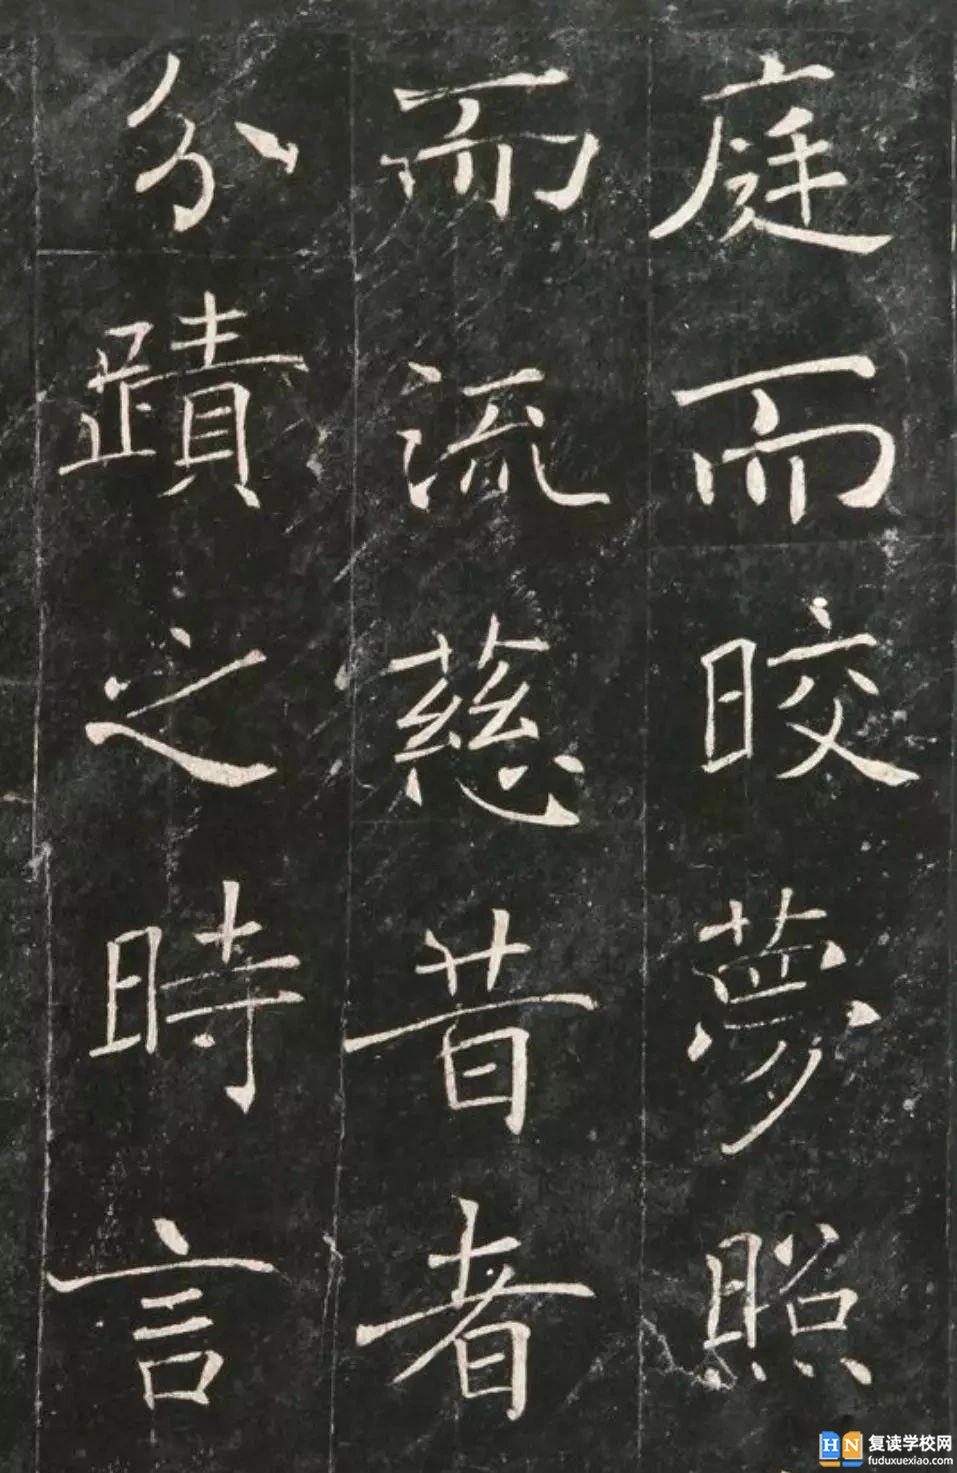 庭而晈夢照
而流慈昔者
分蹟之時言
HN 复读学校网
fuduxuexiao.com